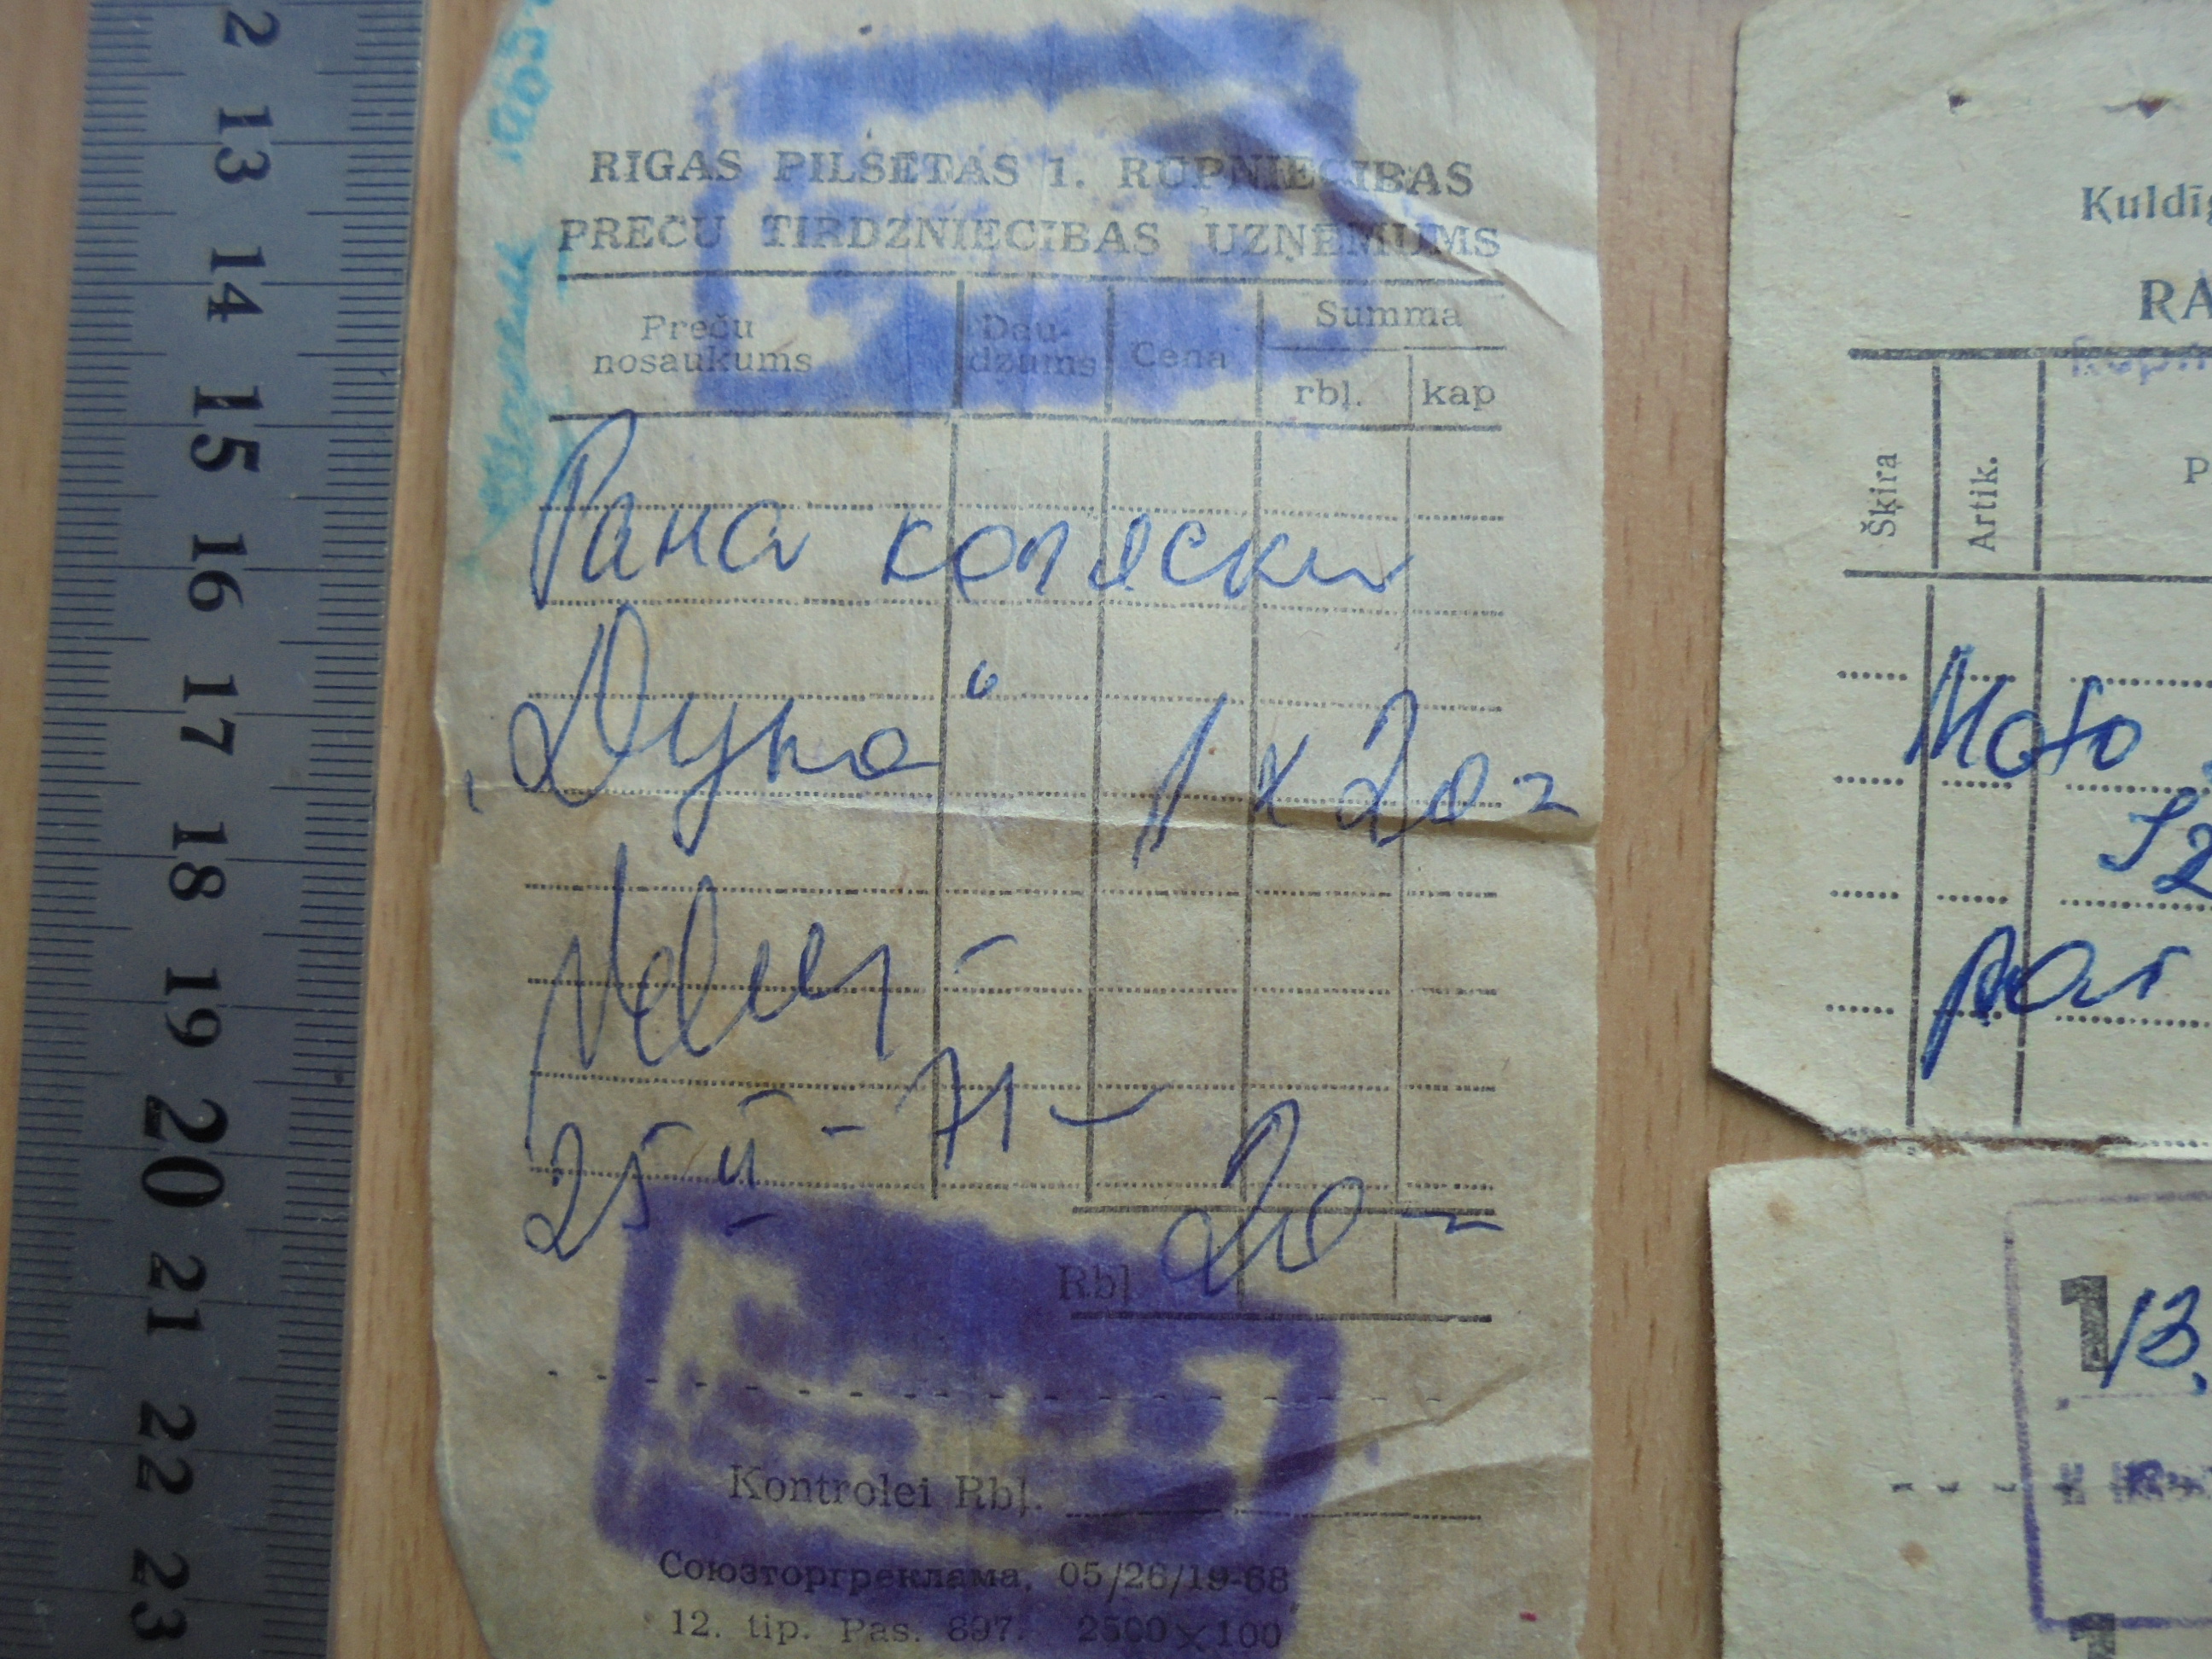 2
13
14
15
16
17
18
19
20
21
22
23
RIGAS PILSETAS 1. RŪPNIECIBAS
PREČU TIRDZNIECIBAS UZŅEMUMS
Preču
nosaukums
Dau-
dzums
Cena
Summa
rbļ.
kap
Рама коляски
„Дуна“ 1 x 20=
25 II - 71 -
20=
Rbļ.
Kontrolei Rbļ.
Союзторгреклама, 05/26/19-68
12. tip. Pas. 897. 2500×100
Kuldīg
RA
Šķira
Artik.
P
Moto
par
1
13.
1